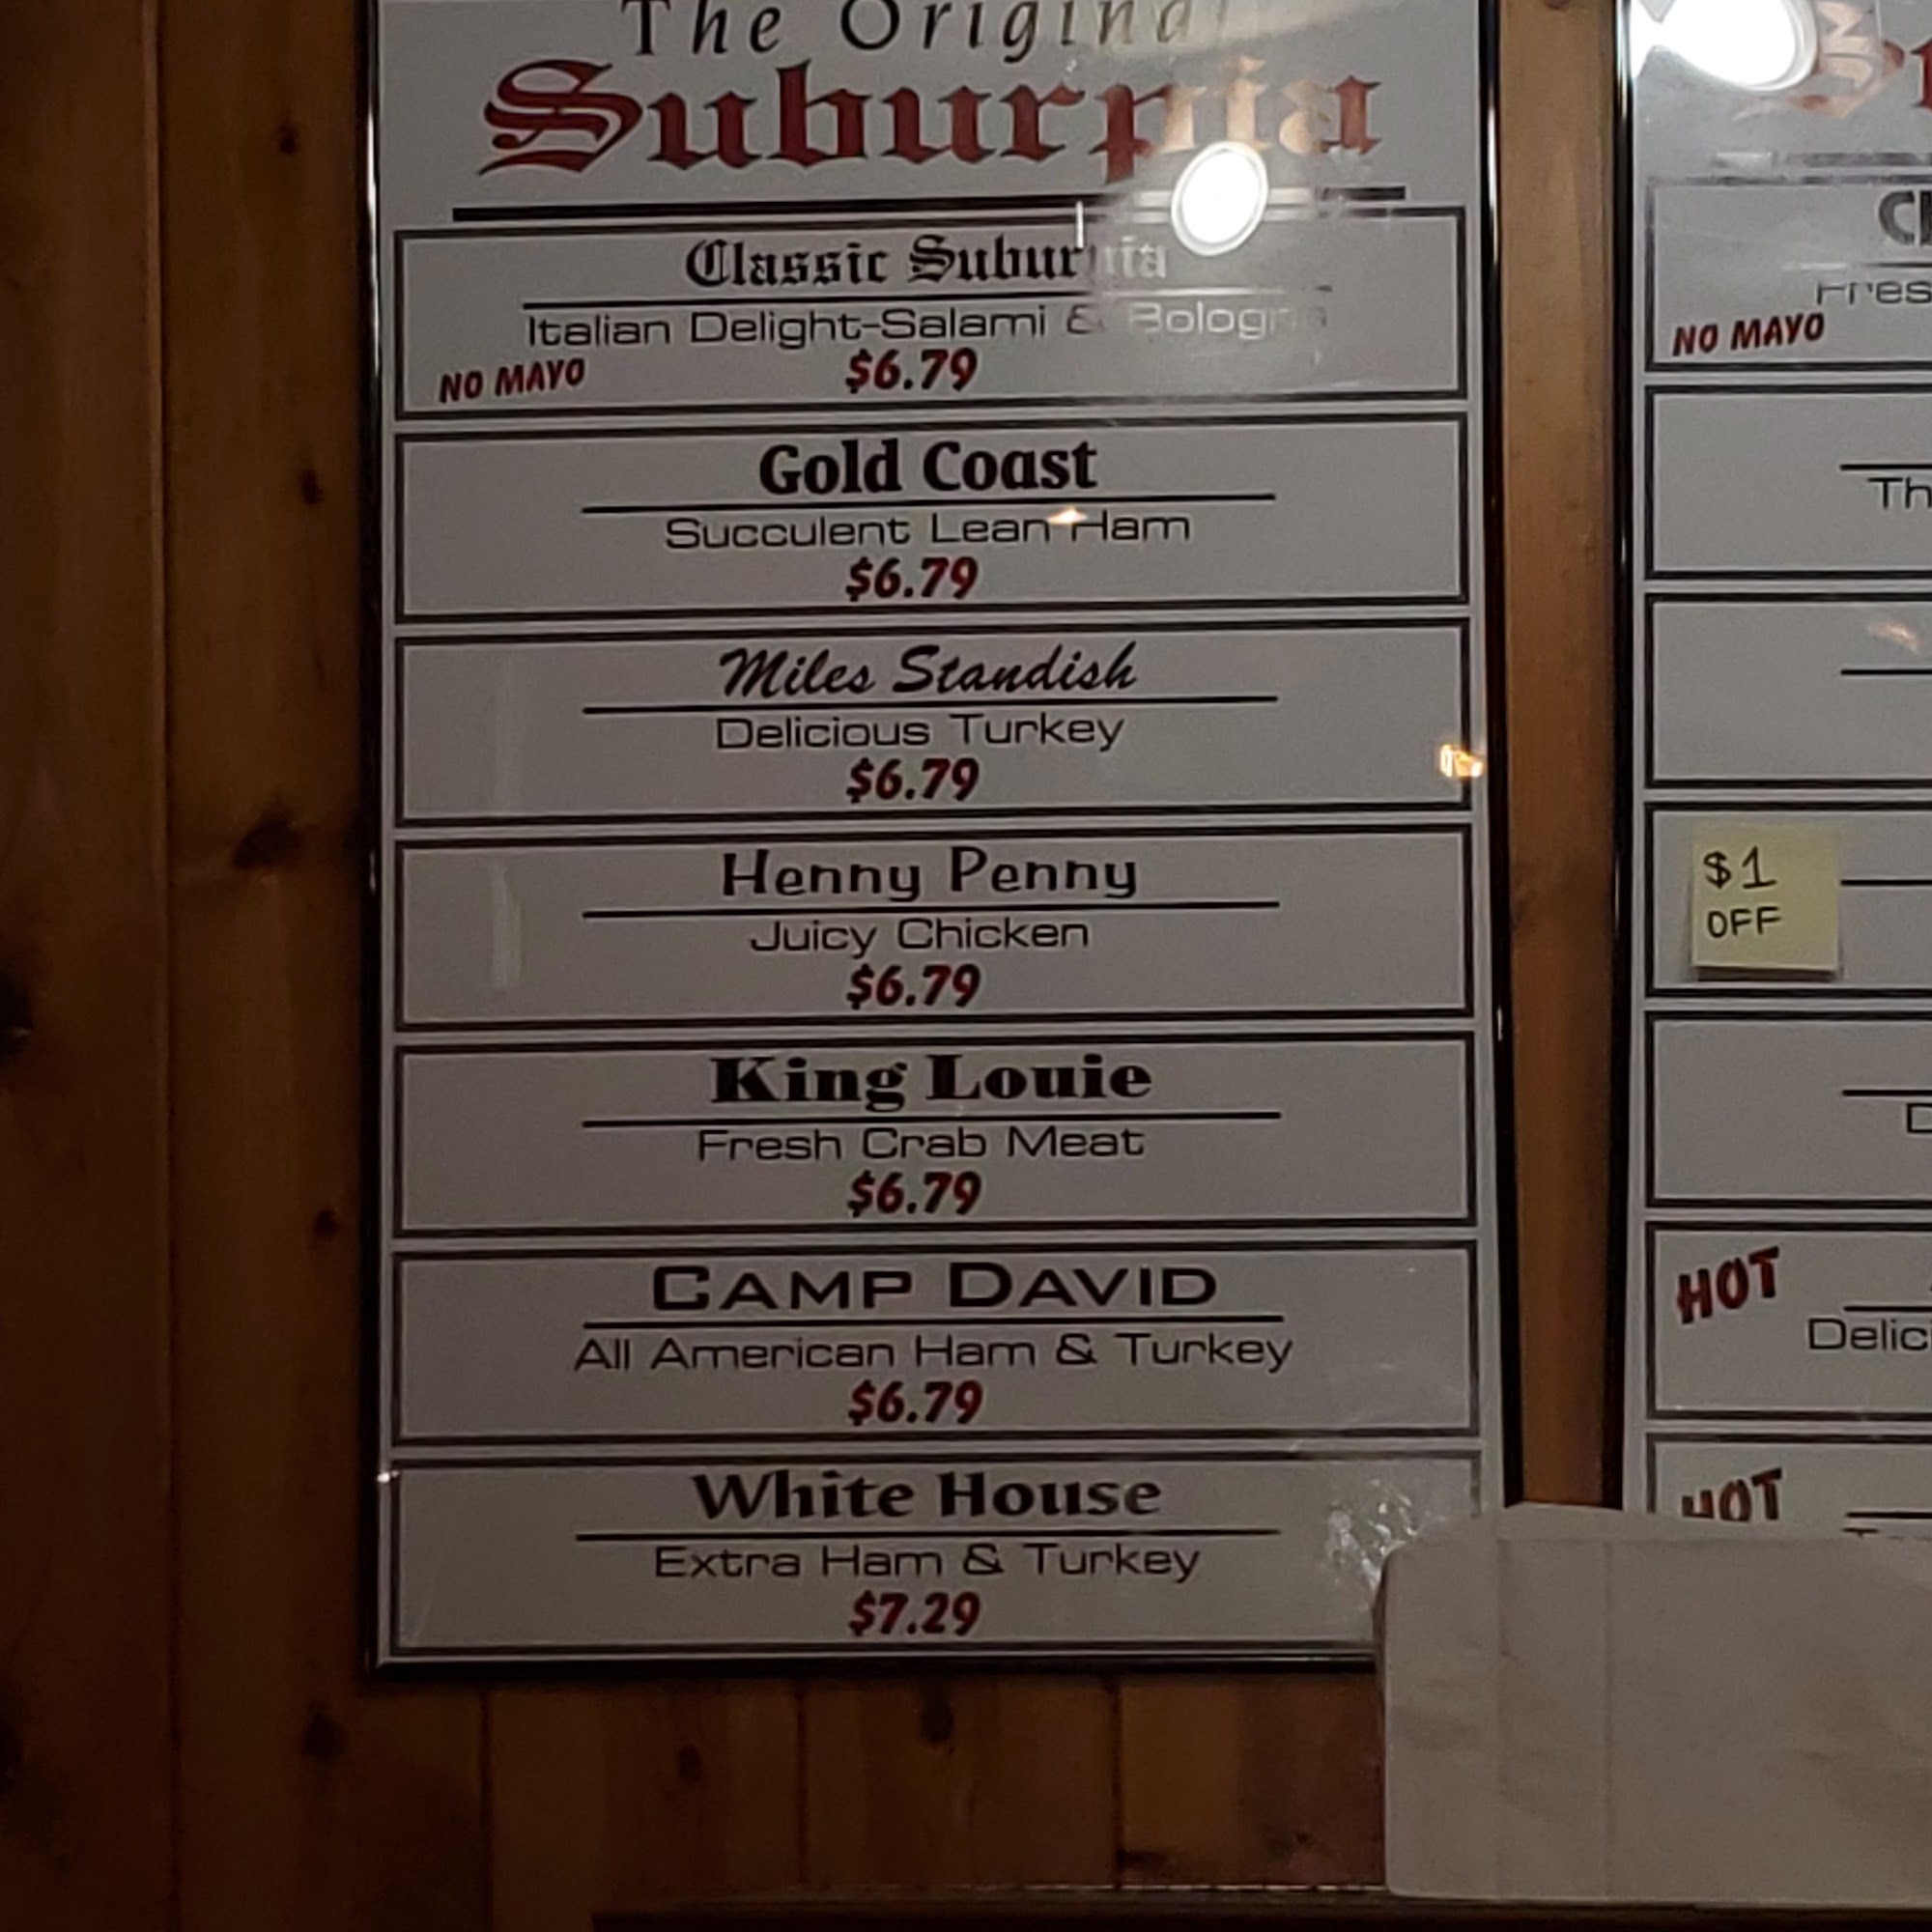 The Original
Suburpia
Classic Suburpia
Italian Delight-Salami & Bologna
NO MAYO
$6.79
Gold Coast
Succulent Lean Ham
$6.79
Miles Standish
Delicious Turkey
$6.79
Henny Penny
Juicy Chicken
$6.79
King Louie
Fresh Crab Meat
$6.79
CAMP DAVID
All American Ham & Turkey
$6.79
White House
Extra Ham & Turkey
$7.29
NO MAYO
$1
OFF
HOT
HOT